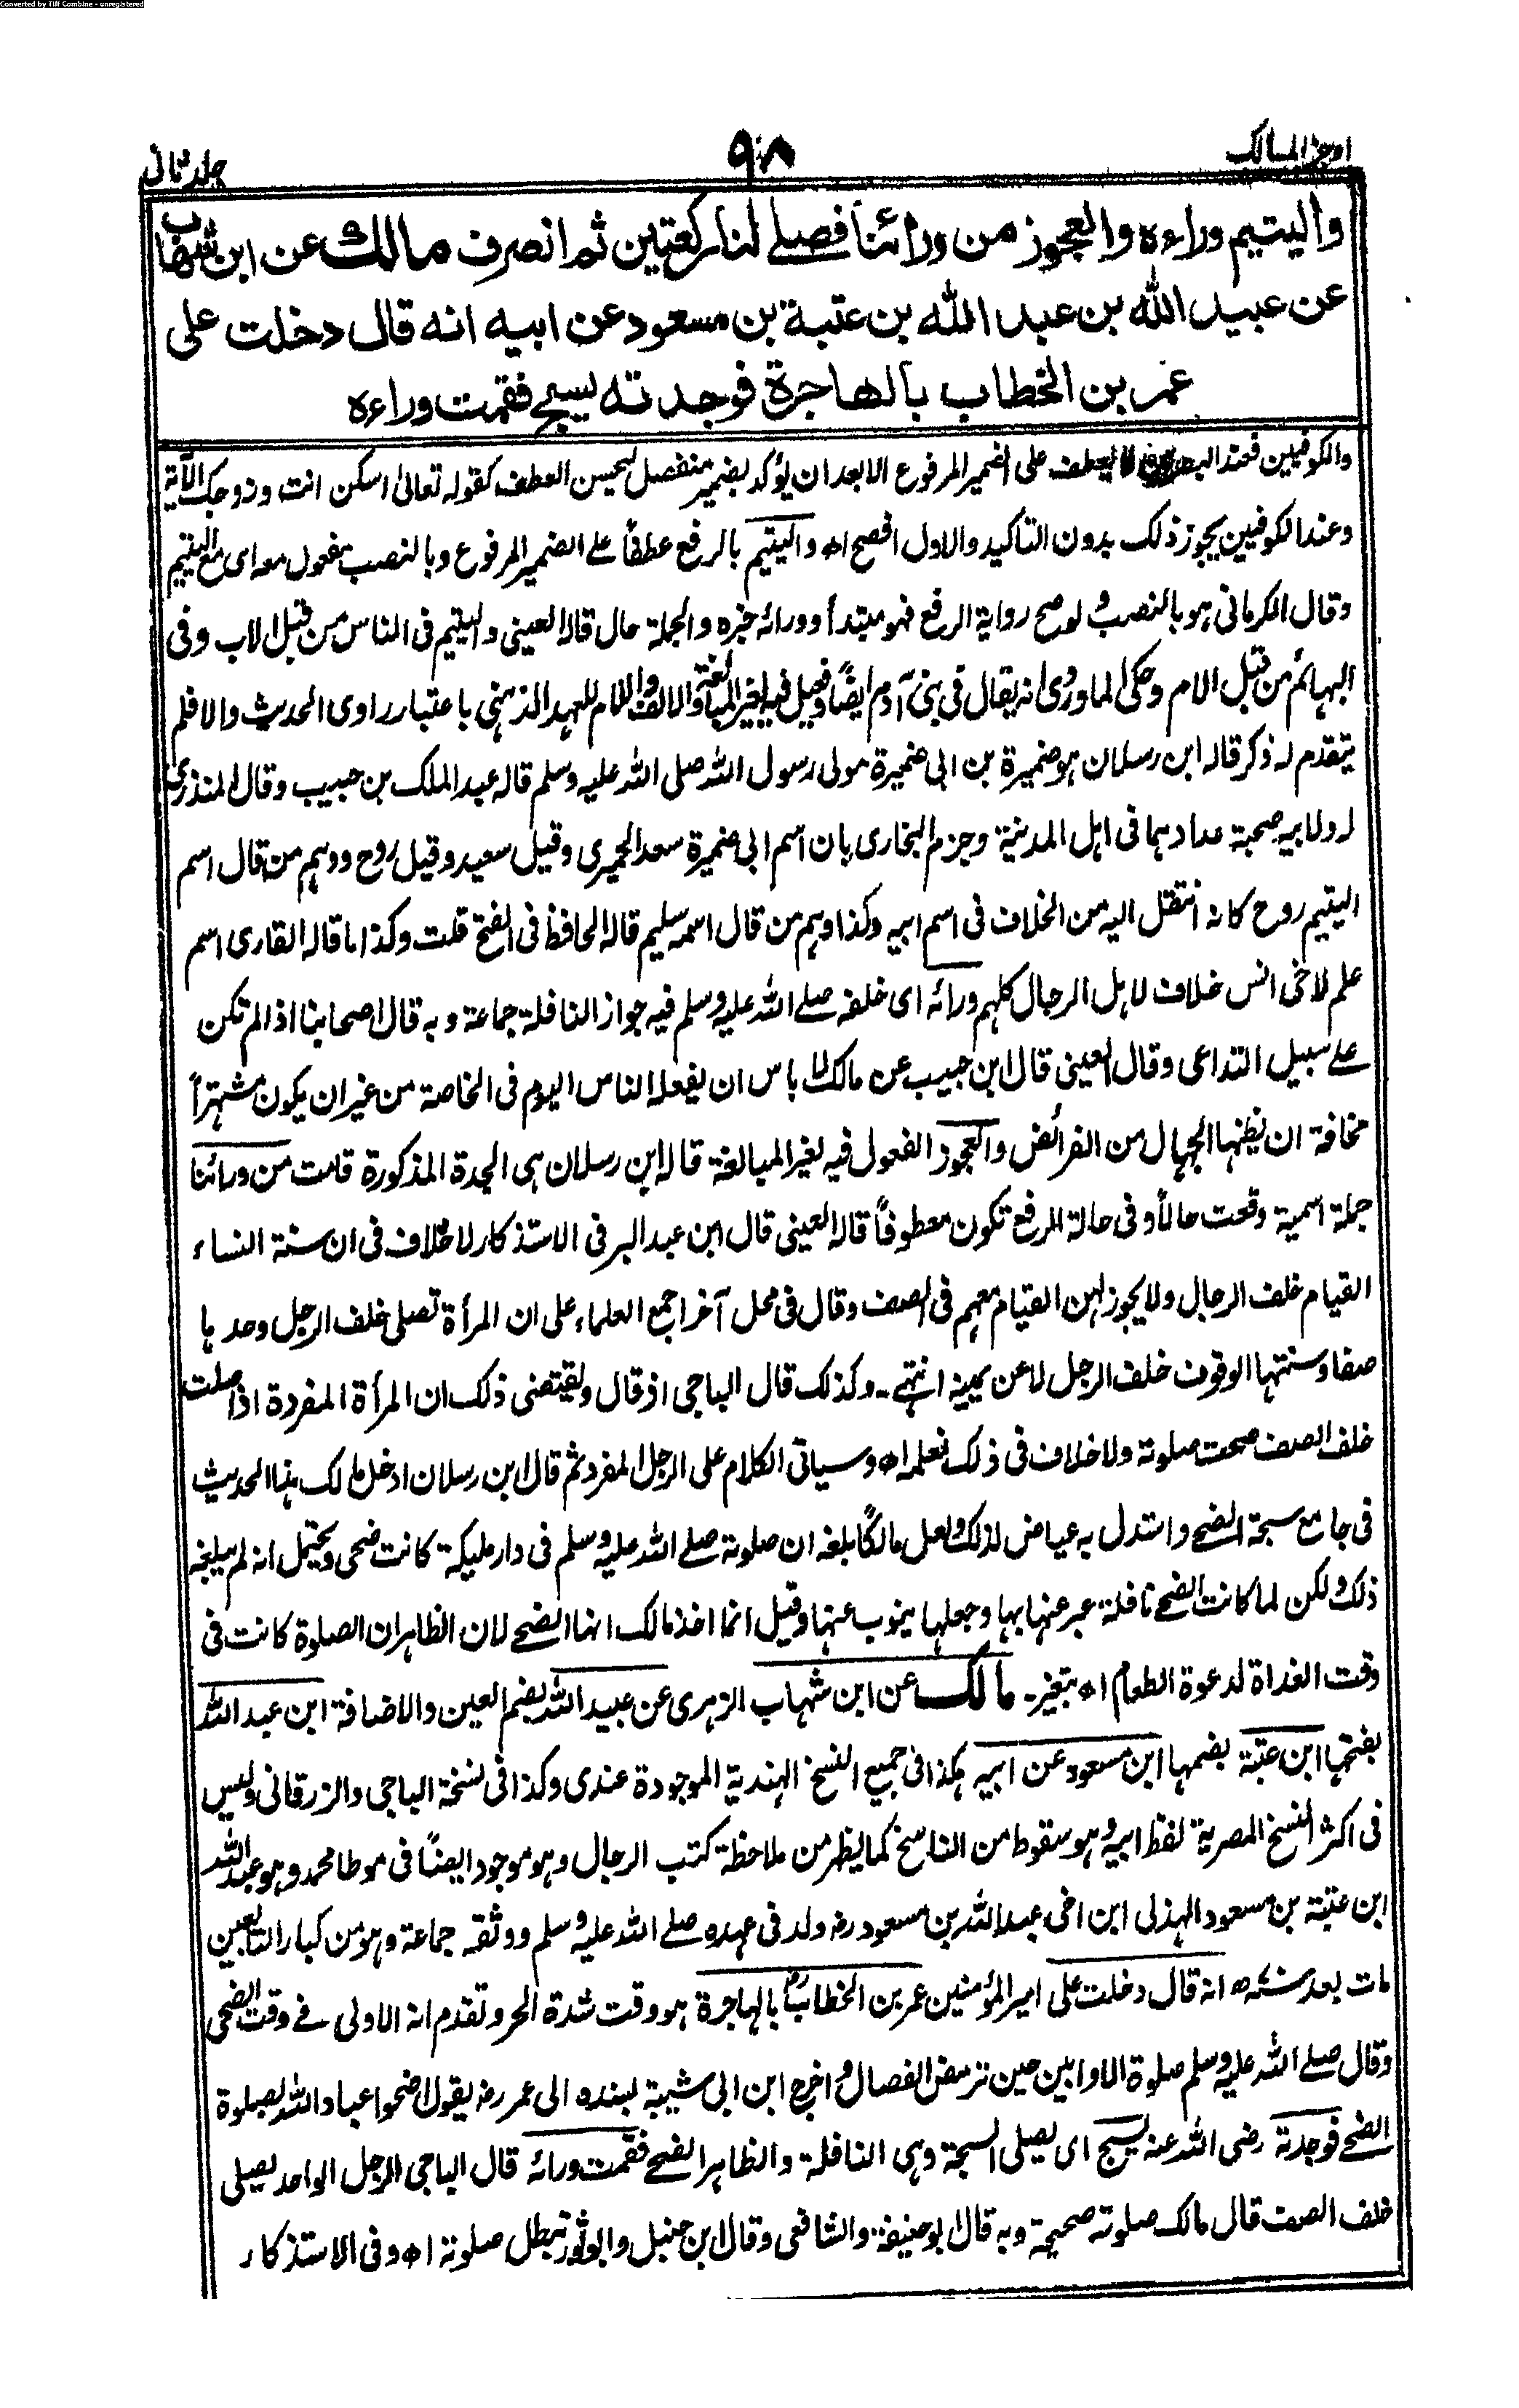 Converted by Tiff Combine - unregistered
اوجز المسالک
٩٨
جلد ثانی
واليتيم وراءه والعجوز من ورائنا فصلے لنا ركعتين ثم انصرف مالك عن ابن شهاب
عن عبيد الله بن عبد الله بن عتبة بن مسعود عن ابيه انه قال دخلت على
عمر بن الخطاب بالهاجرة فوجدته يسبح فقمت وراءه
والکوفیین فعند لا العطف علی الضمیر المرفوع الا بعد ان یؤکد بضمیر منفصل لیحسن العطف کقوله تعالیٰ اسکن انت وزوجک الآیة
وعند الکوفیین یجوز ذلک بدون التاکید والاول افصح اھ والیتیم بالرفع عطفاً علے الضمیر المرفوع وبالنصب مفعول معه ای مع الیتیم
وقال الکرمانی ہو بالنصب ولو صح روایة الرفع فهو مبتدأ وورائه خبره والجملة حال قاله العینی والیتیم فی الناس من قبل الاب وفی
البہائم من قبل الام وحکی الماوردی انه یقال فی بنی آدم ایضاً وفعیل فیه لغیر المبالغة والالف واللام للعہد الذہنی باعتبار راوی الحدیث والا فلم
یتقدم له ذکر قاله ابن رسلان ہو ضمیرة بن ابی ضمیرة مولی رسول الله صلی الله علیه وسلم قاله عبد الملک بن حبیب وقال المنذری
له ولابیه صحبة عدادہما فی اہل المدینة وجزم البخاری بان اسم ابی ضمیرة سعد الحمیری وقیل سعید وقیل روح ووہم من قال اسم
الیتیم روح کانه انتقل الیه من الخلاف فی اسم ابیه وکذا وہم من قال اسمه سلیم قاله الحافظ فی الفتح قلت وکذا ما قاله القاری اسم
علم لاخی انس خلاف لاہل الرجال کلہم ورائه ای خلفه صلے الله علیه وسلم فیه جواز النافلة جماعة وبه قال اصحابنا اذا لم تکن
علے سبیل التداعی وقال العینی قال ابن حبیب عن مالک لا باس ان یفعله الناس الیوم فی الخاصة من غیر ان یکون مشتہراً
مخافة ان یظنہا الجہال من الفرائض والعجوز الفعول فیه لغیر المبالغة قاله ابن رسلان ہی الجدة المذکورة قامت من ورائنا
جملة اسمیة وقعت حالاً وفی حالة الرفع تکون معطوفاً قاله العینی قال ابن عبد البر فی الاستذکار لا خلاف فی ان سنة النساء
القیام خلف الرجال ولا یجوز لہن القیام معہم فی الصف وقال فی محل آخر اجمع العلماء علی ان المرأة تصلی خلف الرجل وحدہا
صفا وسنتہا الوقوف خلف الرجل لا عن یمینه انتہے۔ وکذلک قال الباجی اذ قال ویقتضی ذلک ان المرأة المفردة اذا صلت
خلف الصف صحت صلوته ولا خلاف فی ذلک نعلمه اھ وسیاتی الکلام علی الرجل المفرد ثم قال ابن رسلان ادخل مالک ہذا الحدیث
فی جامع سبحة الضحے واستدل به عیاض لذلک ولعل مالکاً بلغه ان صلوته صلے الله علیه وسلم فی دار ملیکة کانت ضحی ویحتمل انه لم یبلغه
ذلک ولکن لما کانت الضحے نافلة عبر عنہا بہا وجعلہا ینوب عنہا وقیل انما اخذ مالک انہا الضحے لان الظاہر ان الصلوة کانت فی
وقت الغداة لدعوة الطعام اھ بتغیر۔ مالک عن ابن شہاب الزہری عن عبید الله بضم العین والاضافة ابن عبد الله
بفتحہا ابن عتبة بضمہا ابن مسعود عن ابیه ہکذا فی جمیع النسخ الہندیة الموجودة عندی وکذا فی نسخة الباجی والزرقانی ولیس
فی اکثر النسخ المصریة لفظ ابیه وہو سقوط من الناسخ کما یظہر من ملاحظة کتب الرجال وہو موجود ایضاً فی موطا محمد وہو عبد الله
ابن عتبة بن مسعود الہذلی ابن اخی عبد الله بن مسعود رضہ ولد فی عہده صلے الله علیه وسلم ووثقه جماعة وہو من کبار التابعین
مات بعد انه قال دخلت علی امیر المؤمنین عمر بن الخطاب رض بالہاجرة ہو وقت شدة الحر وتقدم انه الاولی فے وقت الضحی
وقال صلے الله علیه وسلم صلوة الاوابین حین ترمض الفصال واخرج ابن ابی شیبة بسنده الی عمر رضہ یقول اضحوا عباد الله بصلوة
الضحے فوجدته رضی الله عنه یسبح ای یصلی السبحة وہی النافلة والظاہر الضحے فقمت ورائه قال الباجی الرجل الواحد یصلی
خلف الصف قال مالک صلوته صحیحة وبه قال ابو حنیفة والشافعی وقال ابن حنبل وابو ثور تبطل صلوته اھ وفی الاستذکار